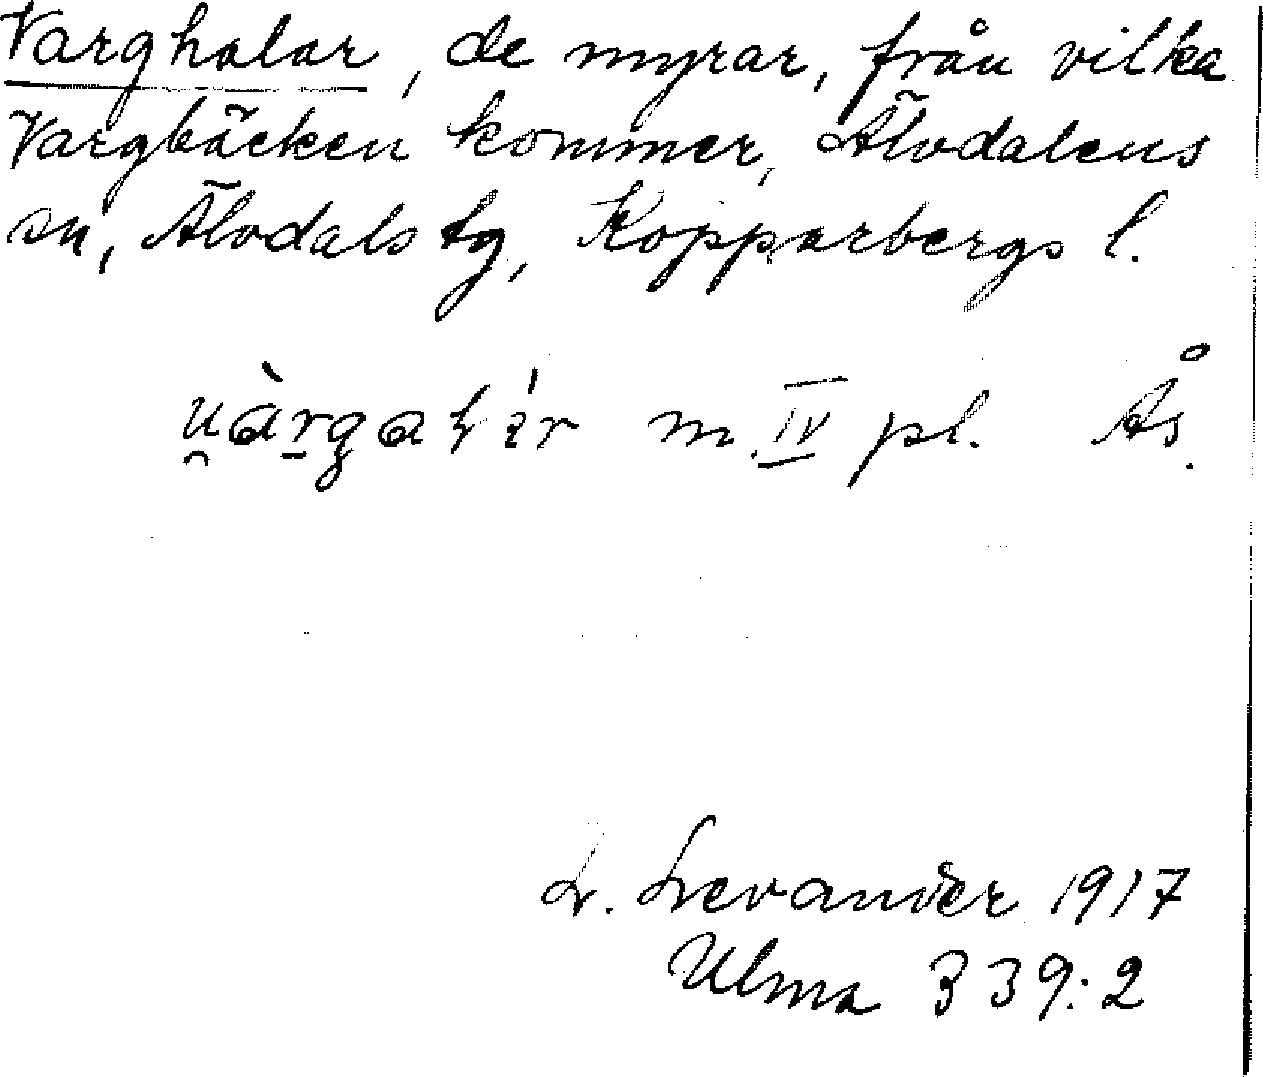 Varghalar, de myrar, från vilka
Vargbäcken kommer, Älvdalens
sn, Älvdals tg, Kopparbergs l.
m. IV pl. Ås.
L. Levander 1917
Ulma 339:2